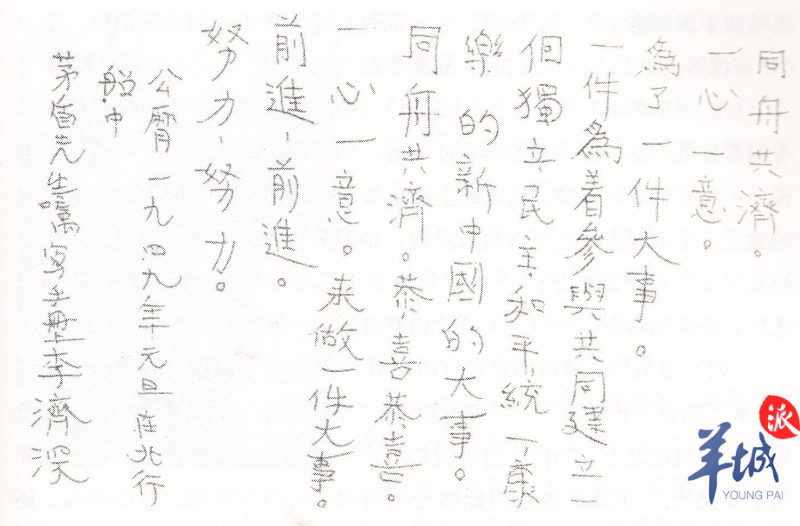 同舟共濟。
一心一意。
為了一件大事。
一件為着參與共同建立一
個獨立民主和平統一康
樂的新中國的大事。
同舟共濟。恭喜恭喜。
一心一意。來做一件大事。
前進，前進。
努力，努力。
公曆一九四九年元旦在北行
船中
茅盾先生囑寫手冊李濟深
派
羊城
YOUNG PAI